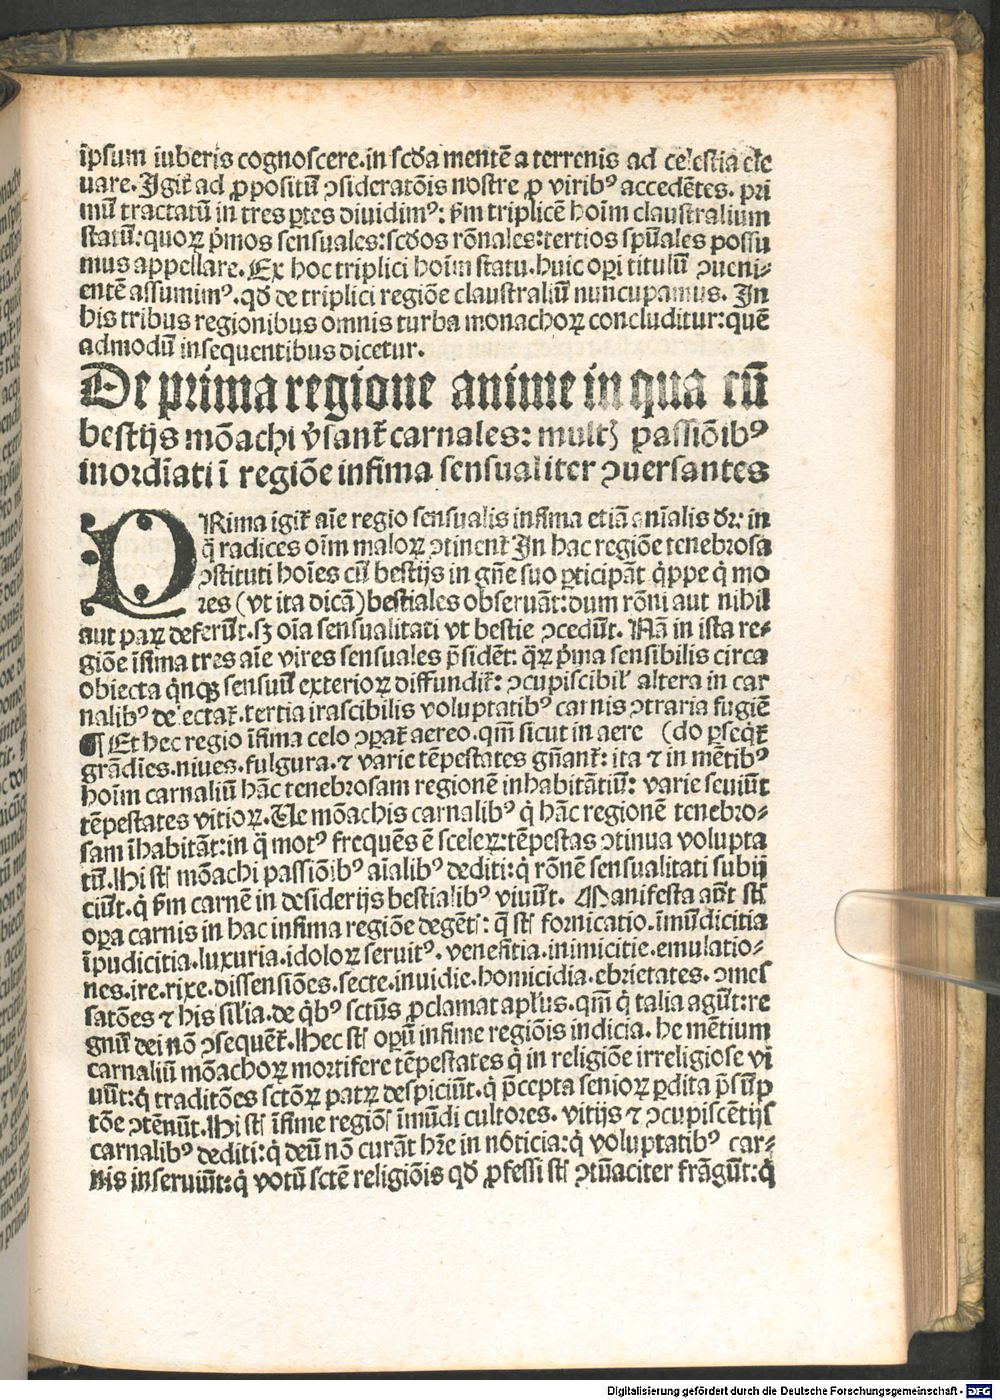 ip̄sum iuberis cognoscere. in scḋa mentē a terrenis ad celestia ele
uare. Igit̄ ad ꝓpositū ꝯsideratōis nostre ꝓ viribꝰ accedētes. pri
mū tractatū in tres ꝑtes diuidimꝰ: p̄m triplicē hoīm claustralium
statū: quoꝝ p̄mos sensuales: scḋos rōnales: tertios spūales possu
mus appellare. Ex hoc triplici hoīm statu. huic oꝑi titulū ꝯueni⸗
entē assumimꝰ. qḋ de triplici regiōe claustraliū nuncupamus. In
his tribus regionibus omnis turba monachoꝝ concluditur: quē
admodū in sequentibus dicetur.
De prima regione anime in qua cū
bestijs mōachi v̓sant̄ carnales: multꝭ passiōibꝰ
inordīati ī regiōe infima sensualiter ꝯuersantes
PRima igit̄ aīe regio sensualis infima etiā anīalis dr̄: in
q̄ radices oīm maloꝝ ꝯtinent̄ In hac regiōe tenebrosa
ꝯstituti hoīes cū bestijs in gn̄e suo ꝑticipāt q̓ppe q̓ mo
res (vt ita dicā) bestiales obseruāt: dum rōni aut nihil
aut paꝝ deferūt. sꝫ oīa sensualitati vt bestie ꝯcedūt. Nā in ista re⸗
giōe īfima tres aīe vires sensuales p̄sidēt: q̄ꝝ p̄ma sensibilis circa
obiecta q̓nqꝫ sensuū exterioꝝ diffundit̄: ꝯcupiscibil̓ altera in car
nalibꝰ delectat̄. tertia irascibilis voluptatibꝰ carnis ꝯtraria fugiē
¶ Et hec regio īfima celo ꝯꝑat̄ aereo. qm̄ sicut in aere (do ꝑseqt̄
grādīes. niues. fulgura. ⁊ varie tēpestates gn̄ant̄: ita ⁊ in mētibꝰ
hoīm carnaliū hāc tenebrosam regionē inhabitātiū: varie seuiūt
tēpestates vitioꝝ. Ve mōachis carnalibꝰ q̓ hāc regionē tenebro⸗
sam īhabitāt: in q̄ motꝰ frequēs ē sceleꝝ: tēpestas ꝯtinua volupta
tū. Hi st̄ mōachi passiōibꝰ aīalibꝰ dediti: q̓ rōnē sensualitati subij
ciūt. q̓ p̄m carnē in desiderijs bestialibꝰ viuūt. Manifesta aūt st̄
oꝑa carnis in hac infima regiōe degētꝭ: q̄ st̄ fornicatio. īmūdicitia
īpudicitia. luxuria. idoloꝝ seruitꝰ. veneficia. inimicitie. emulatio⸗
nes. ire. rixe. dissensiōes. secte. inuidie. homicidia. ebrietates. ꝯmes
satōes ⁊ his sil̓ia. de q̓bꝰ sctūs ꝓclamat apl̓us. qm̄ q̓ talia agūt: re
gnū dei nō ꝯsequēt̄. Hec st̄ oꝑū infime regiōis indicia. he mētium
carnaliū mōachoꝝ mortifere tēpestates q̓ in religiōe irreligiose vi
uūt: q̓ traditōes sctōꝝ patꝝ despiciūt. q̓ p̄cepta senioꝝ ꝑdita p̄sūp
tōe ꝯtēnūt. Hi st̄ īfime regiōꝭ īmūdi cultores. vitijs ⁊ ꝯcupiscētijs
carnalibꝰ dediti: q̓ deū nō curāt hr̄e in nōticia: q̓ voluptatibꝰ car⸗
nis inseruiūt: q̓ votū sctē religiōis qḋ ꝓfessi st̄ ꝯtūaciter frāgūt: q̓
Digitalisierung gefördert durch die Deutsche Forschungsgemeinschaft - DFG